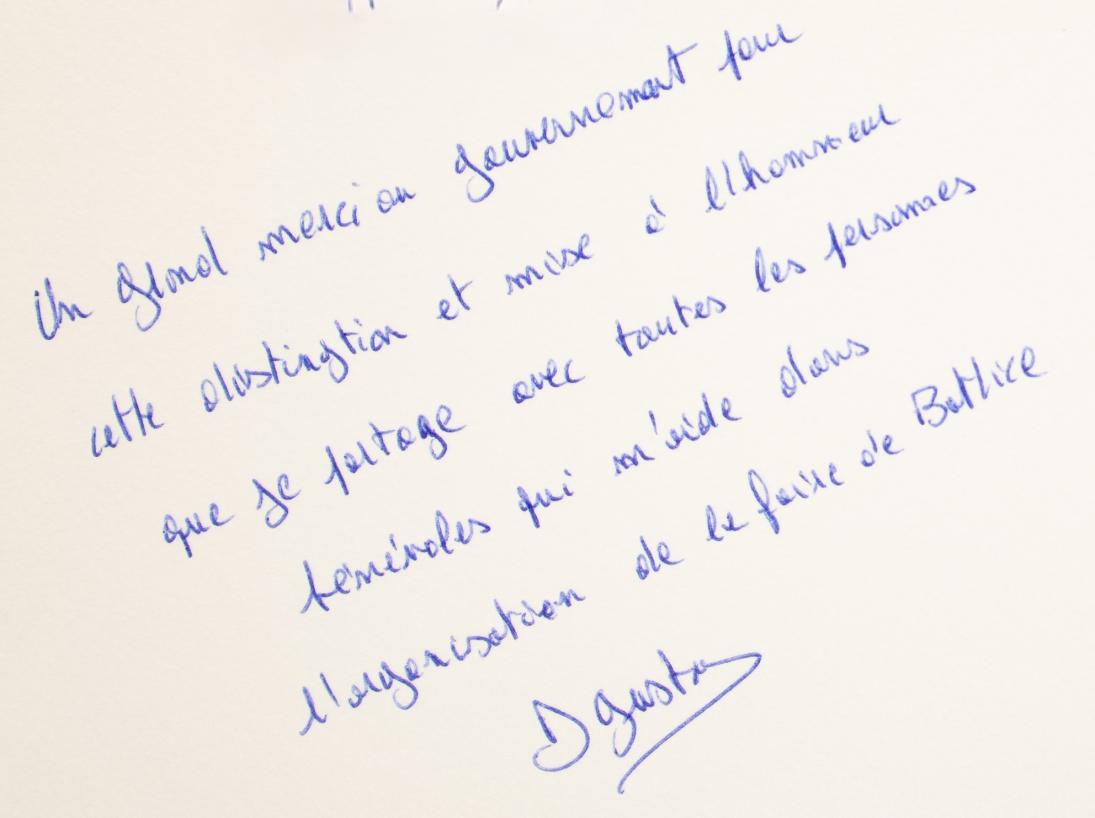 Un grand merci au gouvernement pour
cette distingtion et mise à l'honneur
que je partage avec toutes les personnes
bénévoles qui m'aide dans
l'organisation de la foire de Battice